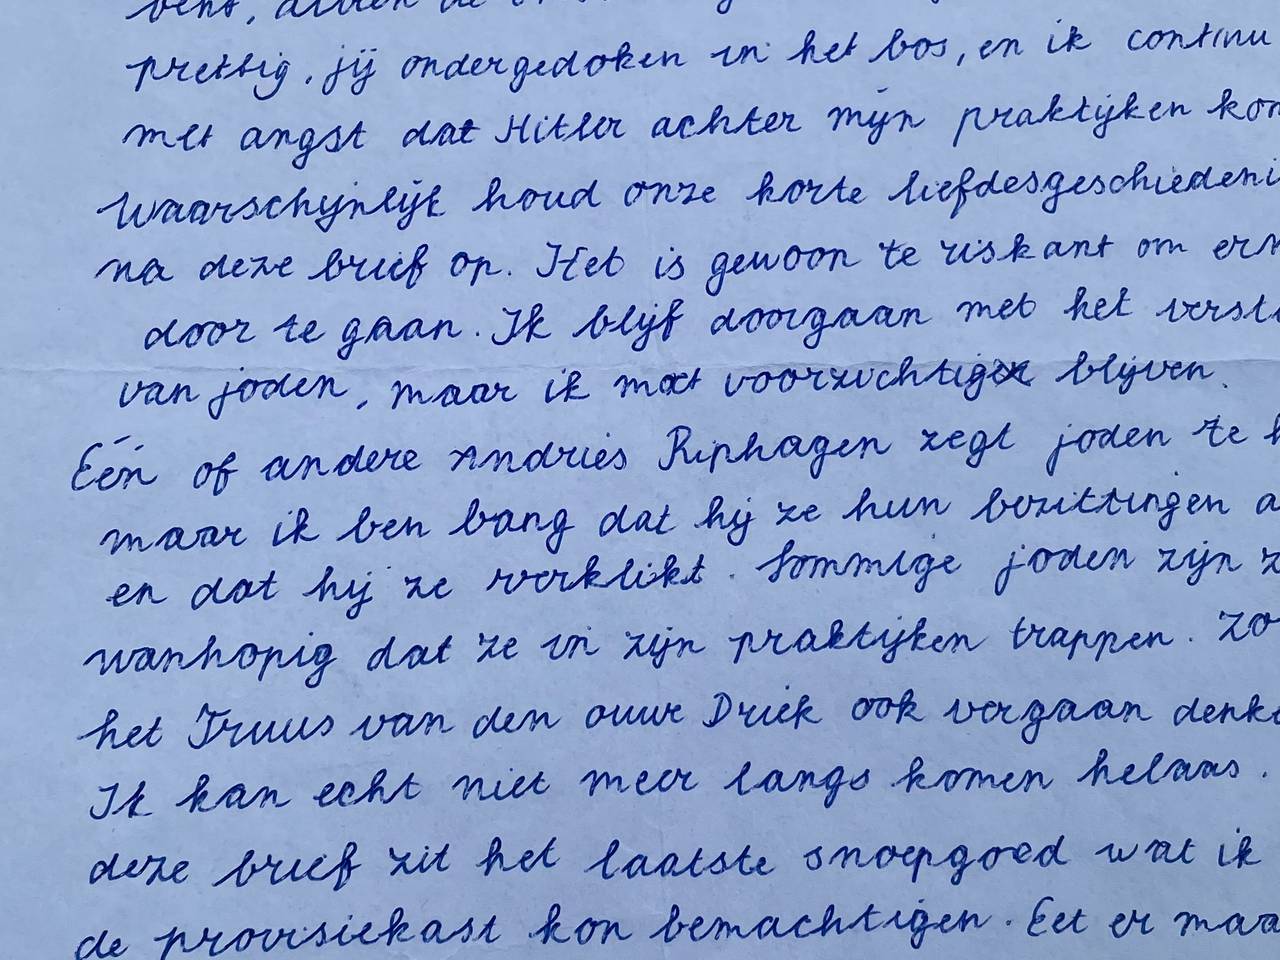 prettig, jij ondergedoken in het bos, en ik continu
met angst dat Hitler achter mijn praktijken
Waarschijnlijk houd onze korte
na deze brief op. Het is gewoon te riskant om
door te gaan. Ik blijf doorgaan met het
van joden, maar ik moet voorzichtig blijven.
Eén of andere Andries Riphagen zegt joden te
maar ik ben bang dat hij ze hun bezittingen
en dat hij ze verklikt. Sommige joden zijn
wanhopig dat ze in zijn praktijken trappen. Zo
het Truus van den ouwe Driek ook vergaan
Ik kan echt niet meer langs komen helaas.
deze brief zit het laatste snoepgoed wat ik
de provisiekast kon bemachtigen. Eet er